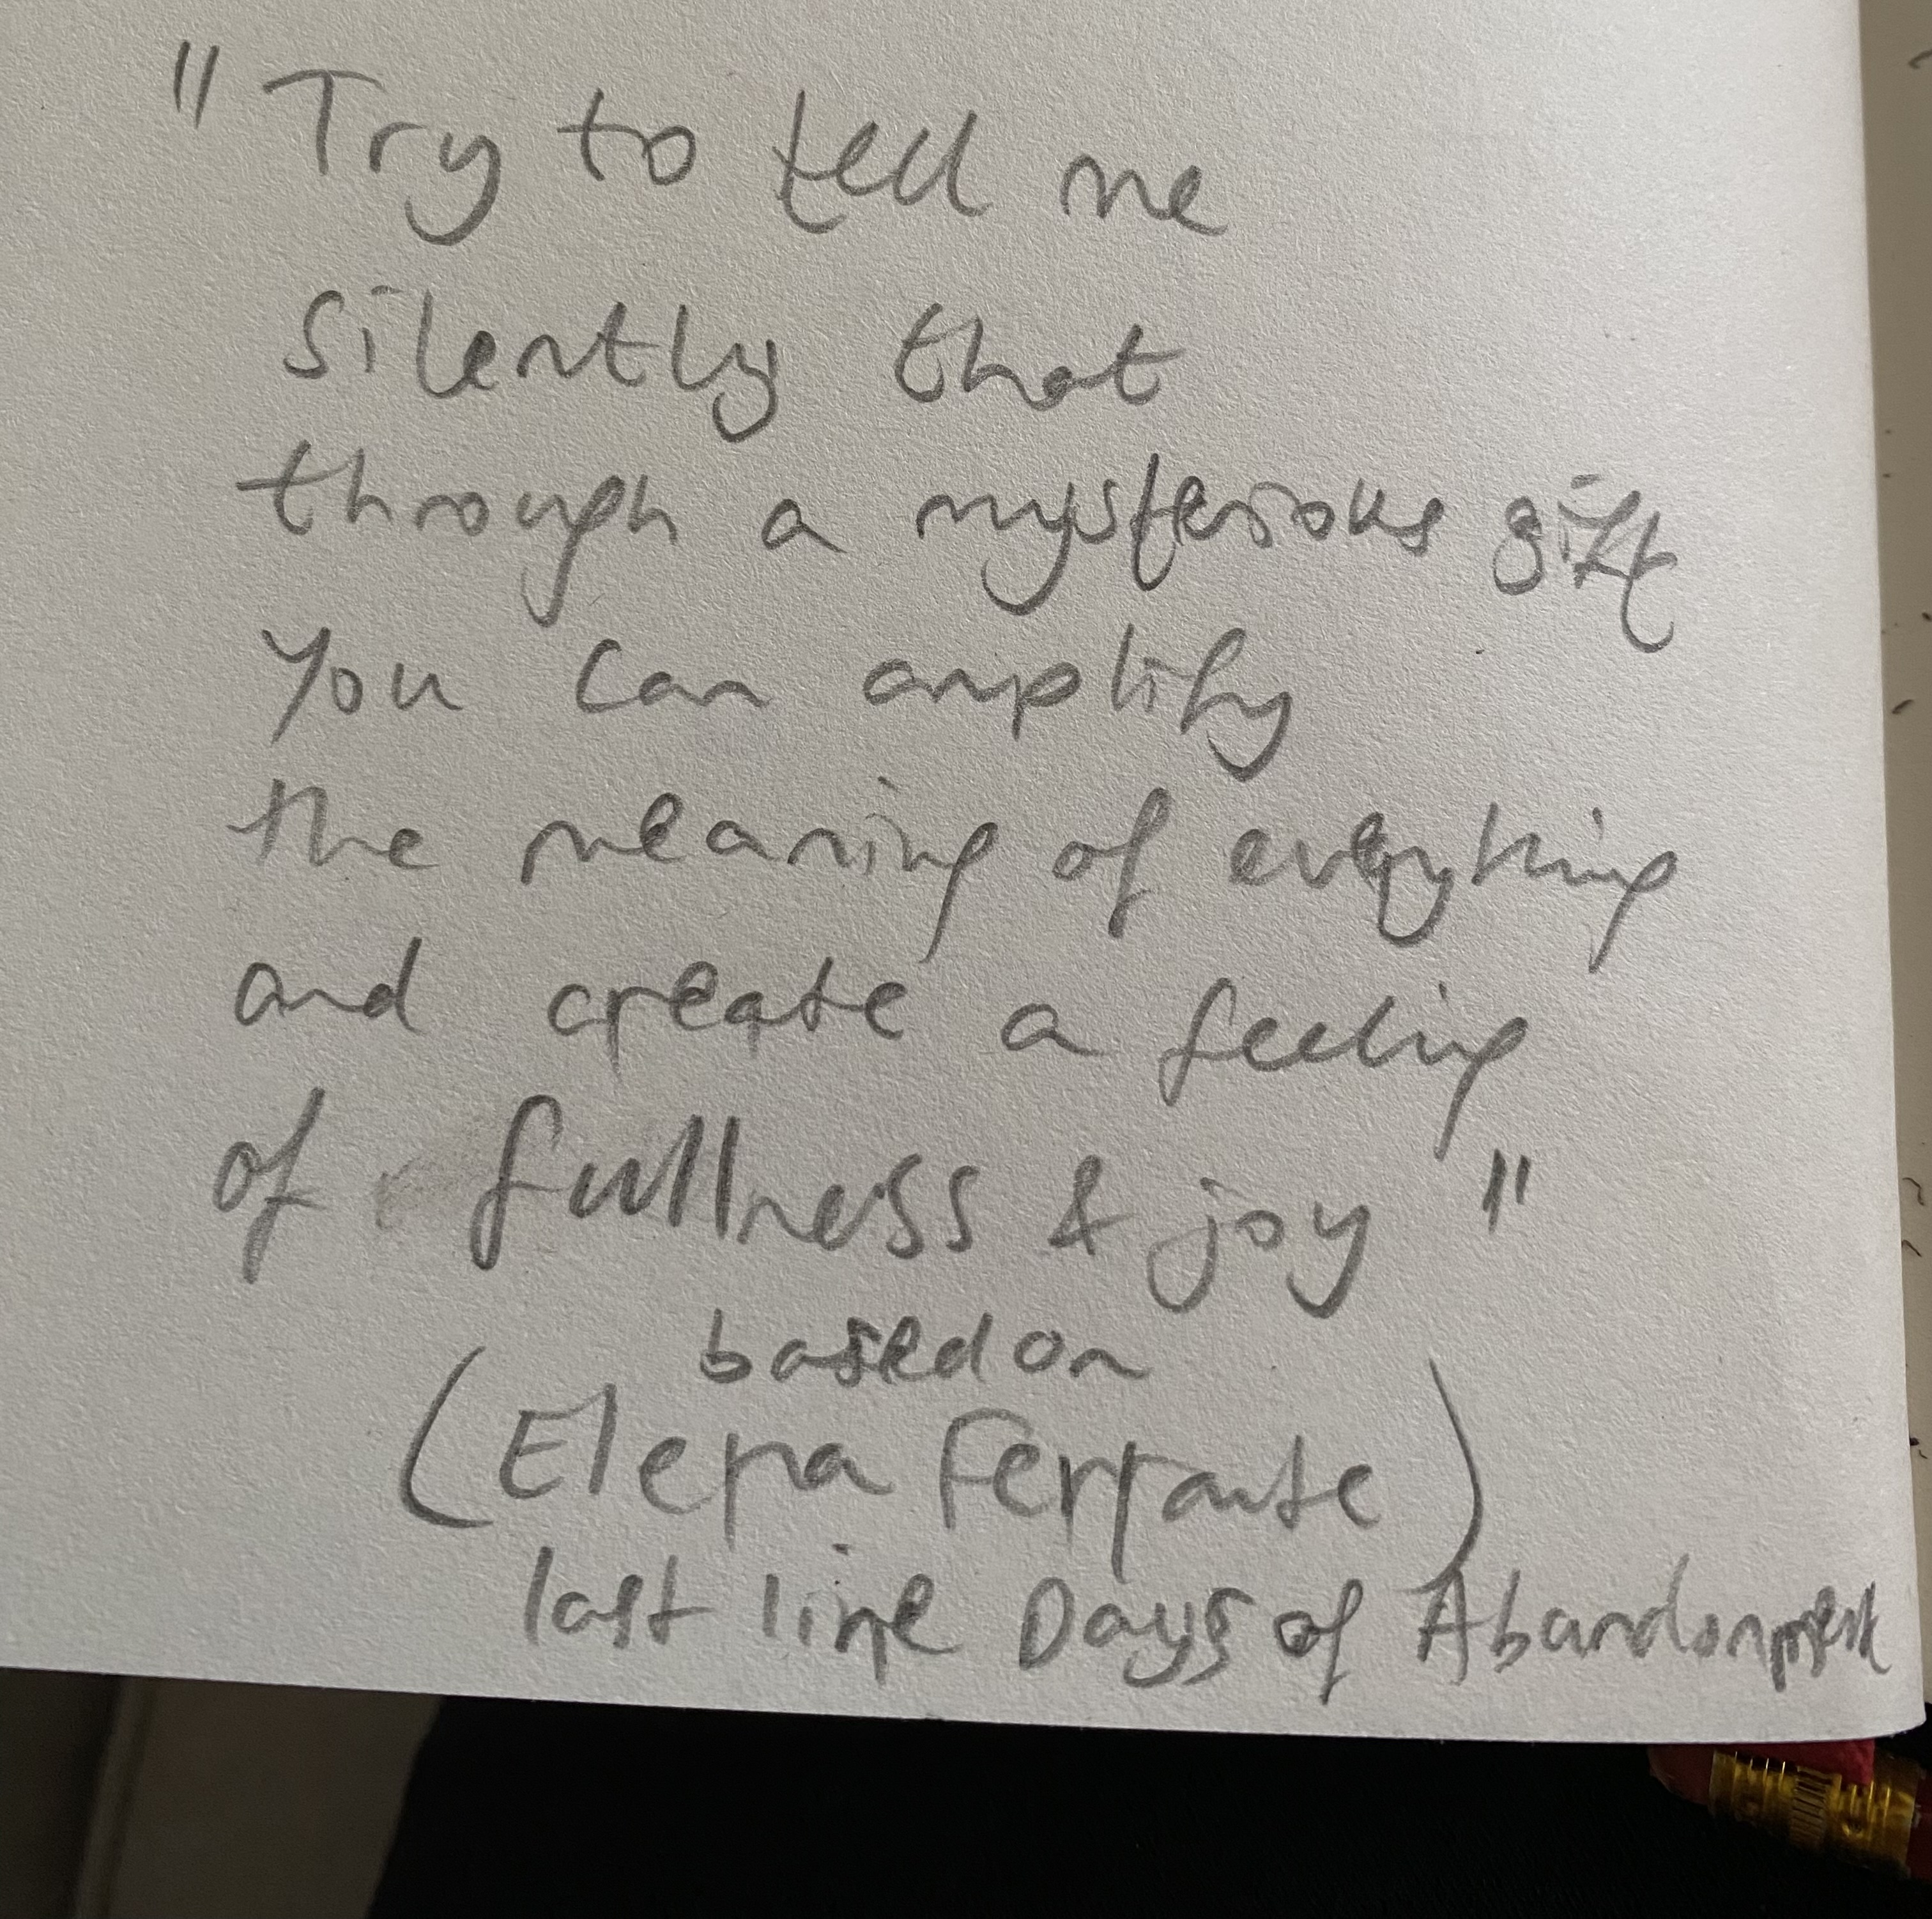 "Try to tell me
silently that
through a mysterious gift
you can amplify
the meaning of everything
and create a feeling
of fullness & joy"
based on
(Elena Ferrante)
last line Days of Abandonment